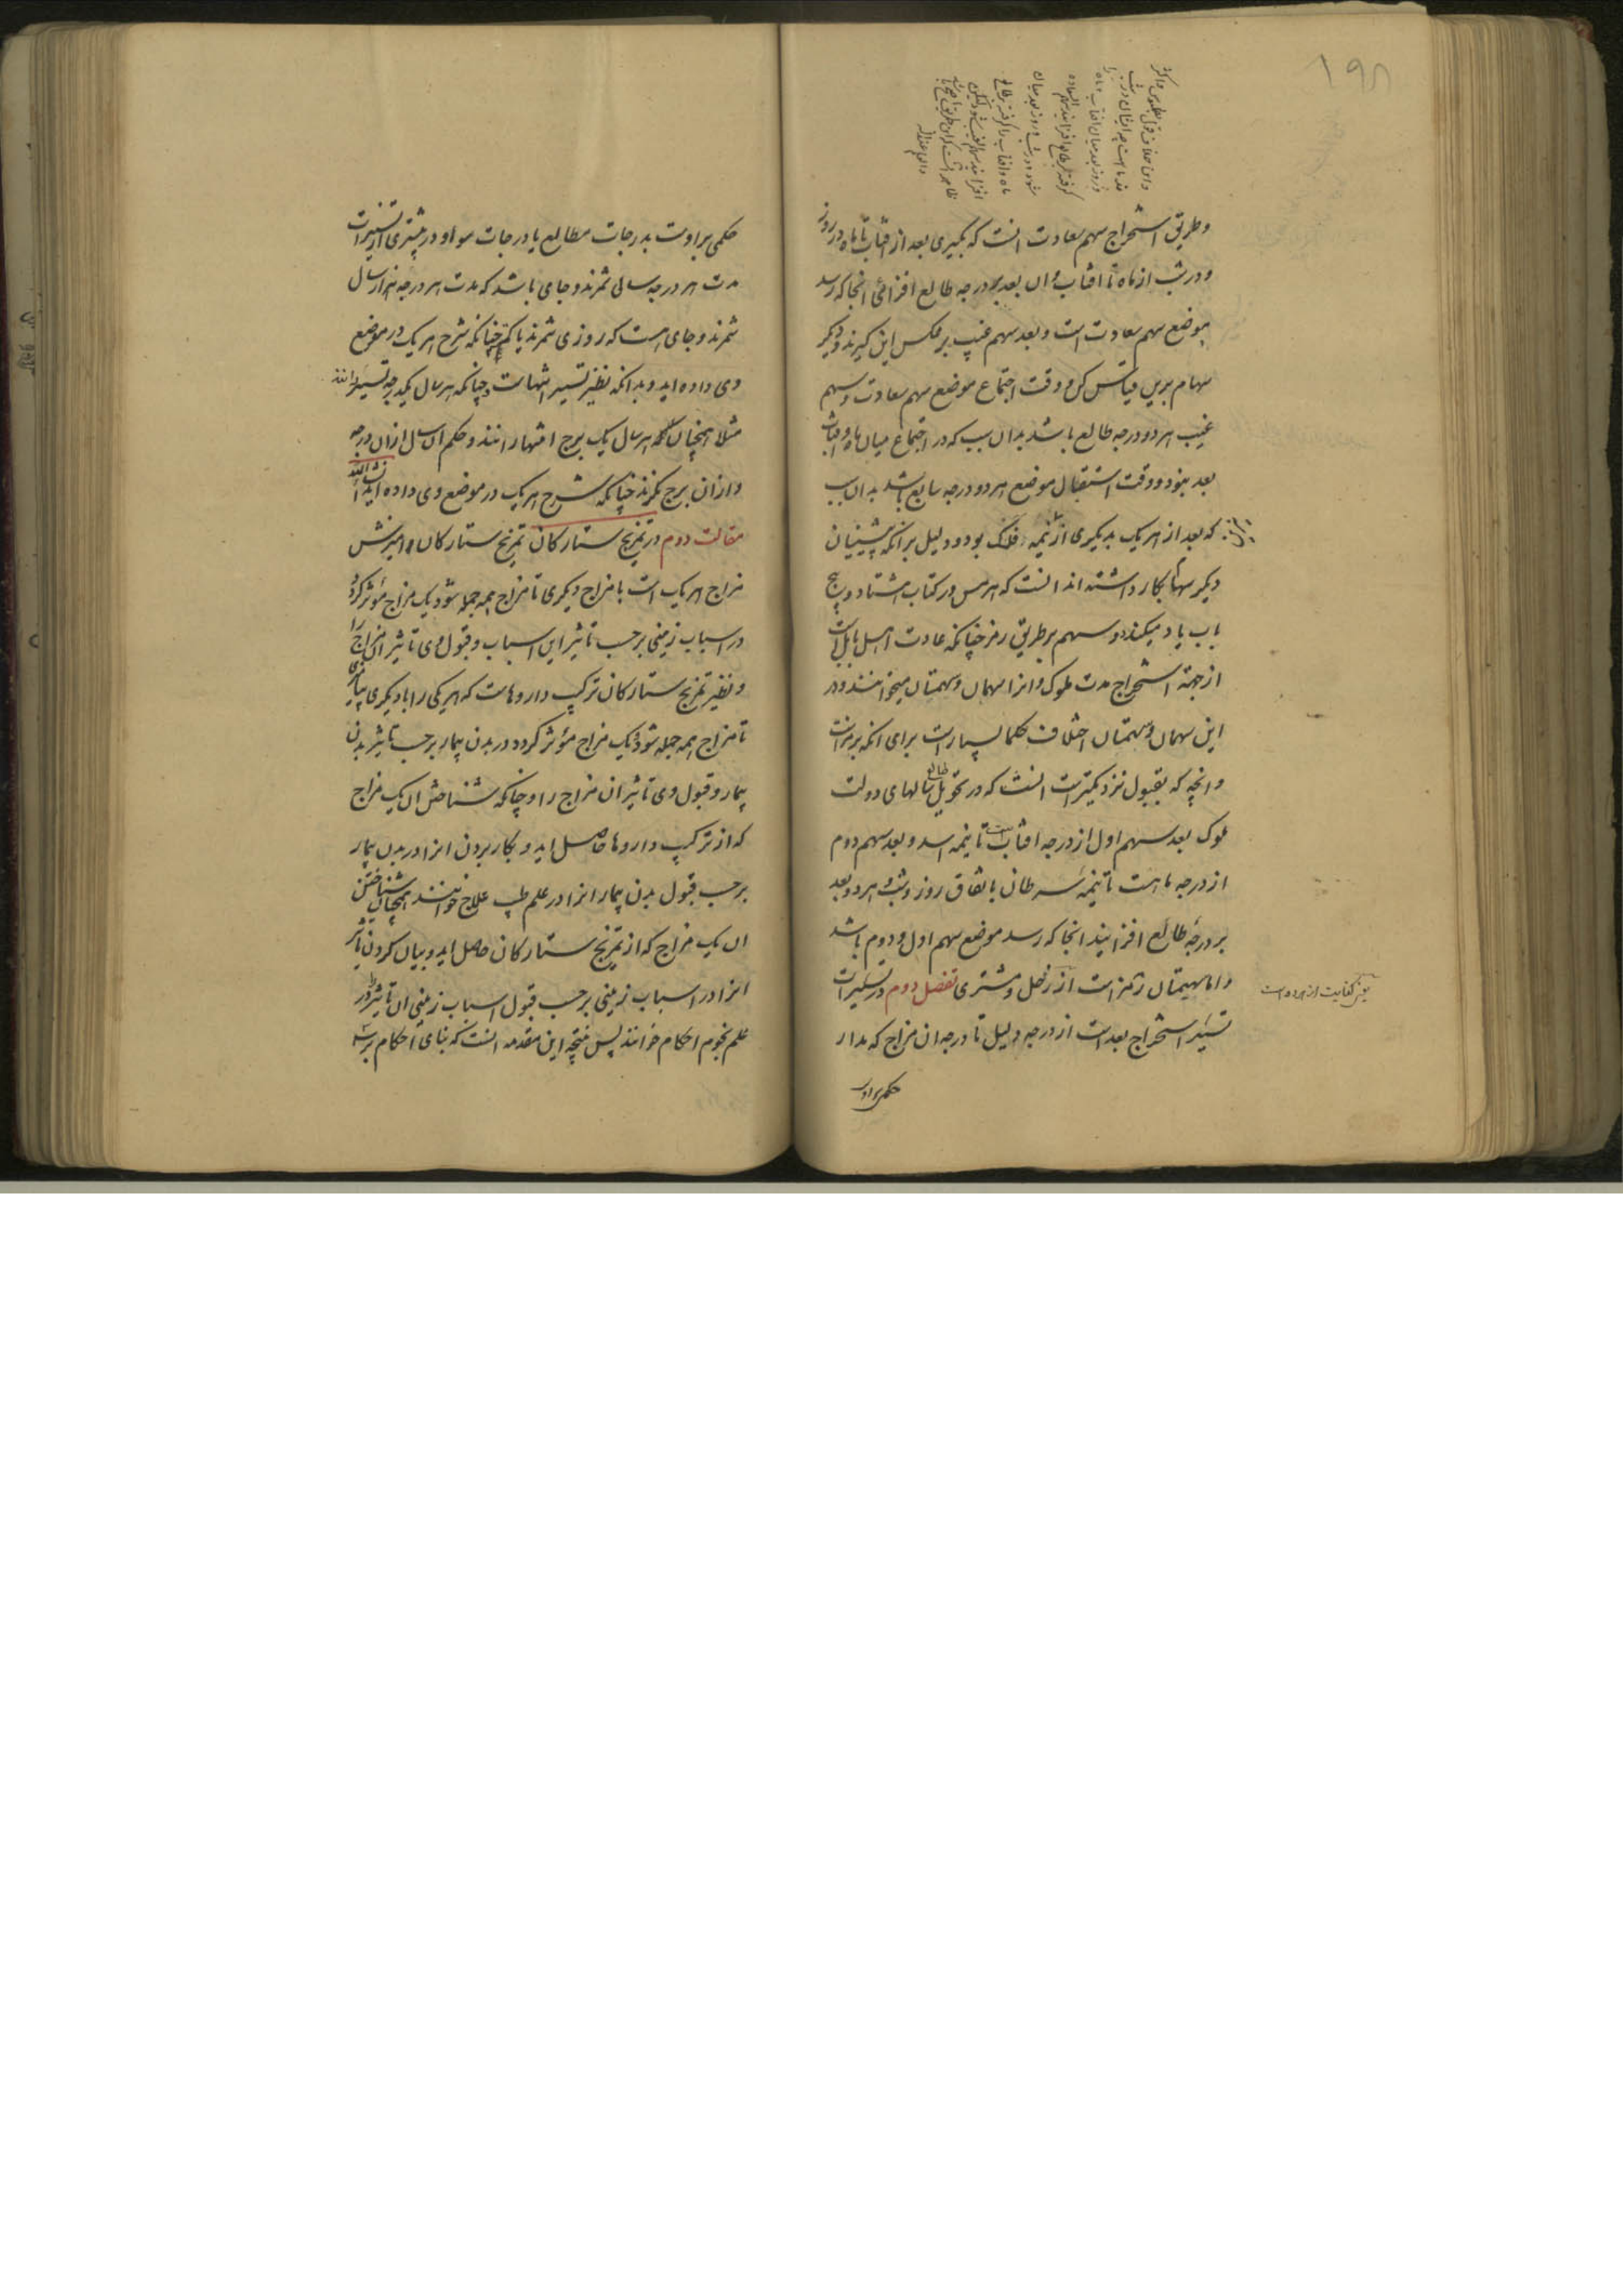 ۱۹۸
وطریق استخراج سهم سعادت انست که بگیری بعد از افتاب تا ماه در روز
ودر شب از ماه تا افتاب وان بعد بر درجه طالع افزائی انجا که رسد
موضع سهم سعادت است وبعد سهم غیب برعکس این گیرند ودیگر
سهام برین قیاس کن ووقت اجتماع موضع سهم سعادت وسهم
غیب هر دو درجه طالع باشد بدان سبب که در اجتماع میان ماه وافتاب
بعد نبود ووقت استقبال موضع هر دو درجه سابع باشد بدان سبب
که بعد از هر یک بدیگری از نیمه فلک بود ودلیل برانکه پیشینیان
دیگر سهمها بکار داشته اند انست که هرمس در کتاب هشتاد وپنج
باب یاد میکند دو سهم بر طریق رمز چنانکه عادت اهل بابل است
از جهة استخراج مدت ملوک وانرا سهمان وسهمتان میخوانند ودر
این سهمان وسهمتان اختلاف حکما بسیار است برای انکه بر رمز است
وانچه که بقبول نزدیکتر است انست که در تحویل طالع سالهای دولت
ملوک بعد سهم اول از درجه افتاب است تا نیمه اسد وبعد سهم دوم
از درجه ماهست تا نیمه سرطان باتفاق روز وشب وهر دو بعد
بر درجه طالع افزایند انجا که رسد موضع سهم اول ودوم باشد
واما سهمتان رمز است از زحل ومشتری فصل دوم در تسییرات
تسییر استخراج بعد است از درجه دلیل تا درجه ان مزاج که مدار
حکمی براو
حکمی براوست بدرجات مطالع یا درجات سوا ودر بیشتری از تسییرات
مدت هر درجه سالی شمرند وجای باشد که مدت هر درجه هزار سال
شمرند وجای هست که روزی شمرند یا کم چنانکه شرح هر یک در موضع
وی داده اید وبدانکه نظیر تسییر انتهاست وچنانکه هر سال یکدرجه تسییر رانند
مثلا همچنان هر سال یک برج انتها رانند وحکم ان سال ازان درجه
وازان برج نگرند چنانکه شرح هر یک در موضع وی داده اید انشاالله
مقالت دوم در تمزیج ستارکان تمزیج ستارکان امیزش
مزاج هر یک است با مزاج دیگری تا مزاج همه جمله شود یک مزاج مؤثر گردد
در اسباب زمینی برحسب تاثیر این اسباب وقبول وی تاثیر ان مزاج را
ونظیر تمزیج ستارکان ترکیب داروهاست که هر یکی را با دیگری بیامیزی
تا مزاج همه جمله شود یک مزاج مؤثر گردد در بدن بیمار برحسب تاثیر بدن
بیمار وقبول وی تاثیر ان مزاج را وچنانکه شناختن ان یک مزاج
که از ترکیب داروها حاصل اید وبکار بردن انرا در بدن بیمار
برحسب قبول بدن بیمار انرا در علم طب علاج خوانند همچنان شناختن
ان یک مزاج که از تمزیج ستارکان حاصل اید وبیان کردن تاثیر
انرا در اسباب زمینی برحسب قبول اسباب زمینی ان تاثیر را در
علم نجوم احکام خوانند پس نتیجه این مقدمه انست که بنای احکام بر